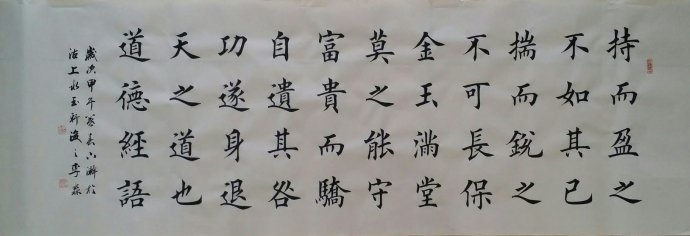 持而盈之
不如其已
揣而銳之
不可長保
金玉滿堂
莫之能守
富貴而驕
自遺其咎
功遂身退
天之道也
道德經語
歲次甲午
沽上